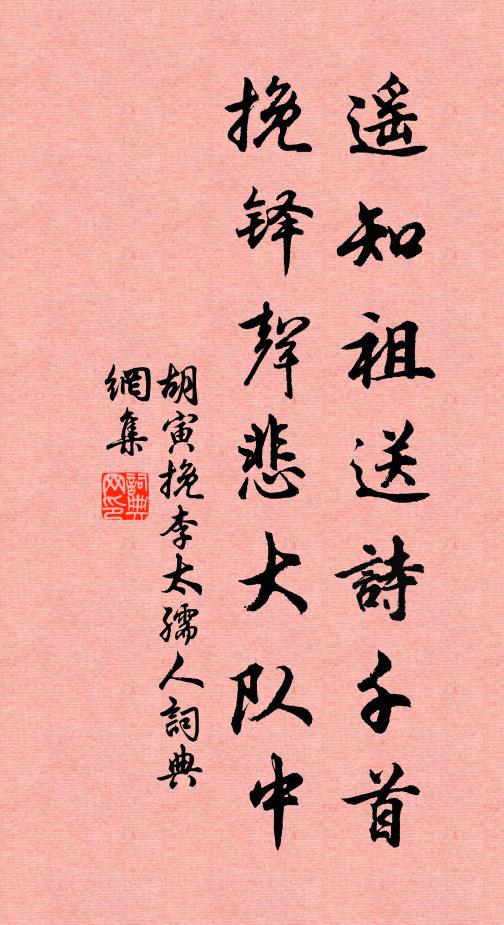 遥知祖送詩千首
挽铎聲悲大队中
胡寅挽李太孺人詞典
網集
詞典
网印